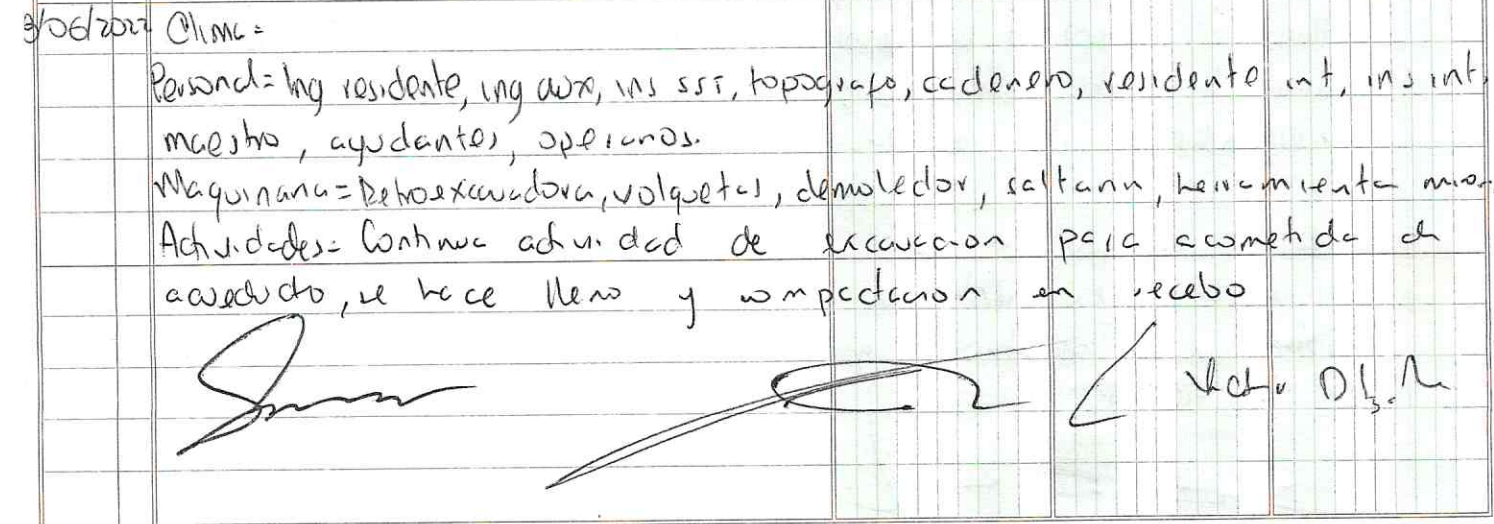 3/06/2022 Clima =
Personal = Ing residente, ing aux, ins SST, topografo, cadenero, residente int, ins int,
maestro, ayudantes, operarios.
Maquinaria = Retroexcavadora, volquetas, demoledor, saltarin, herramienta
Actividades = Continua actividad de excavacion para acometida de
acueducto, se hace lleno y compactacion en recebo